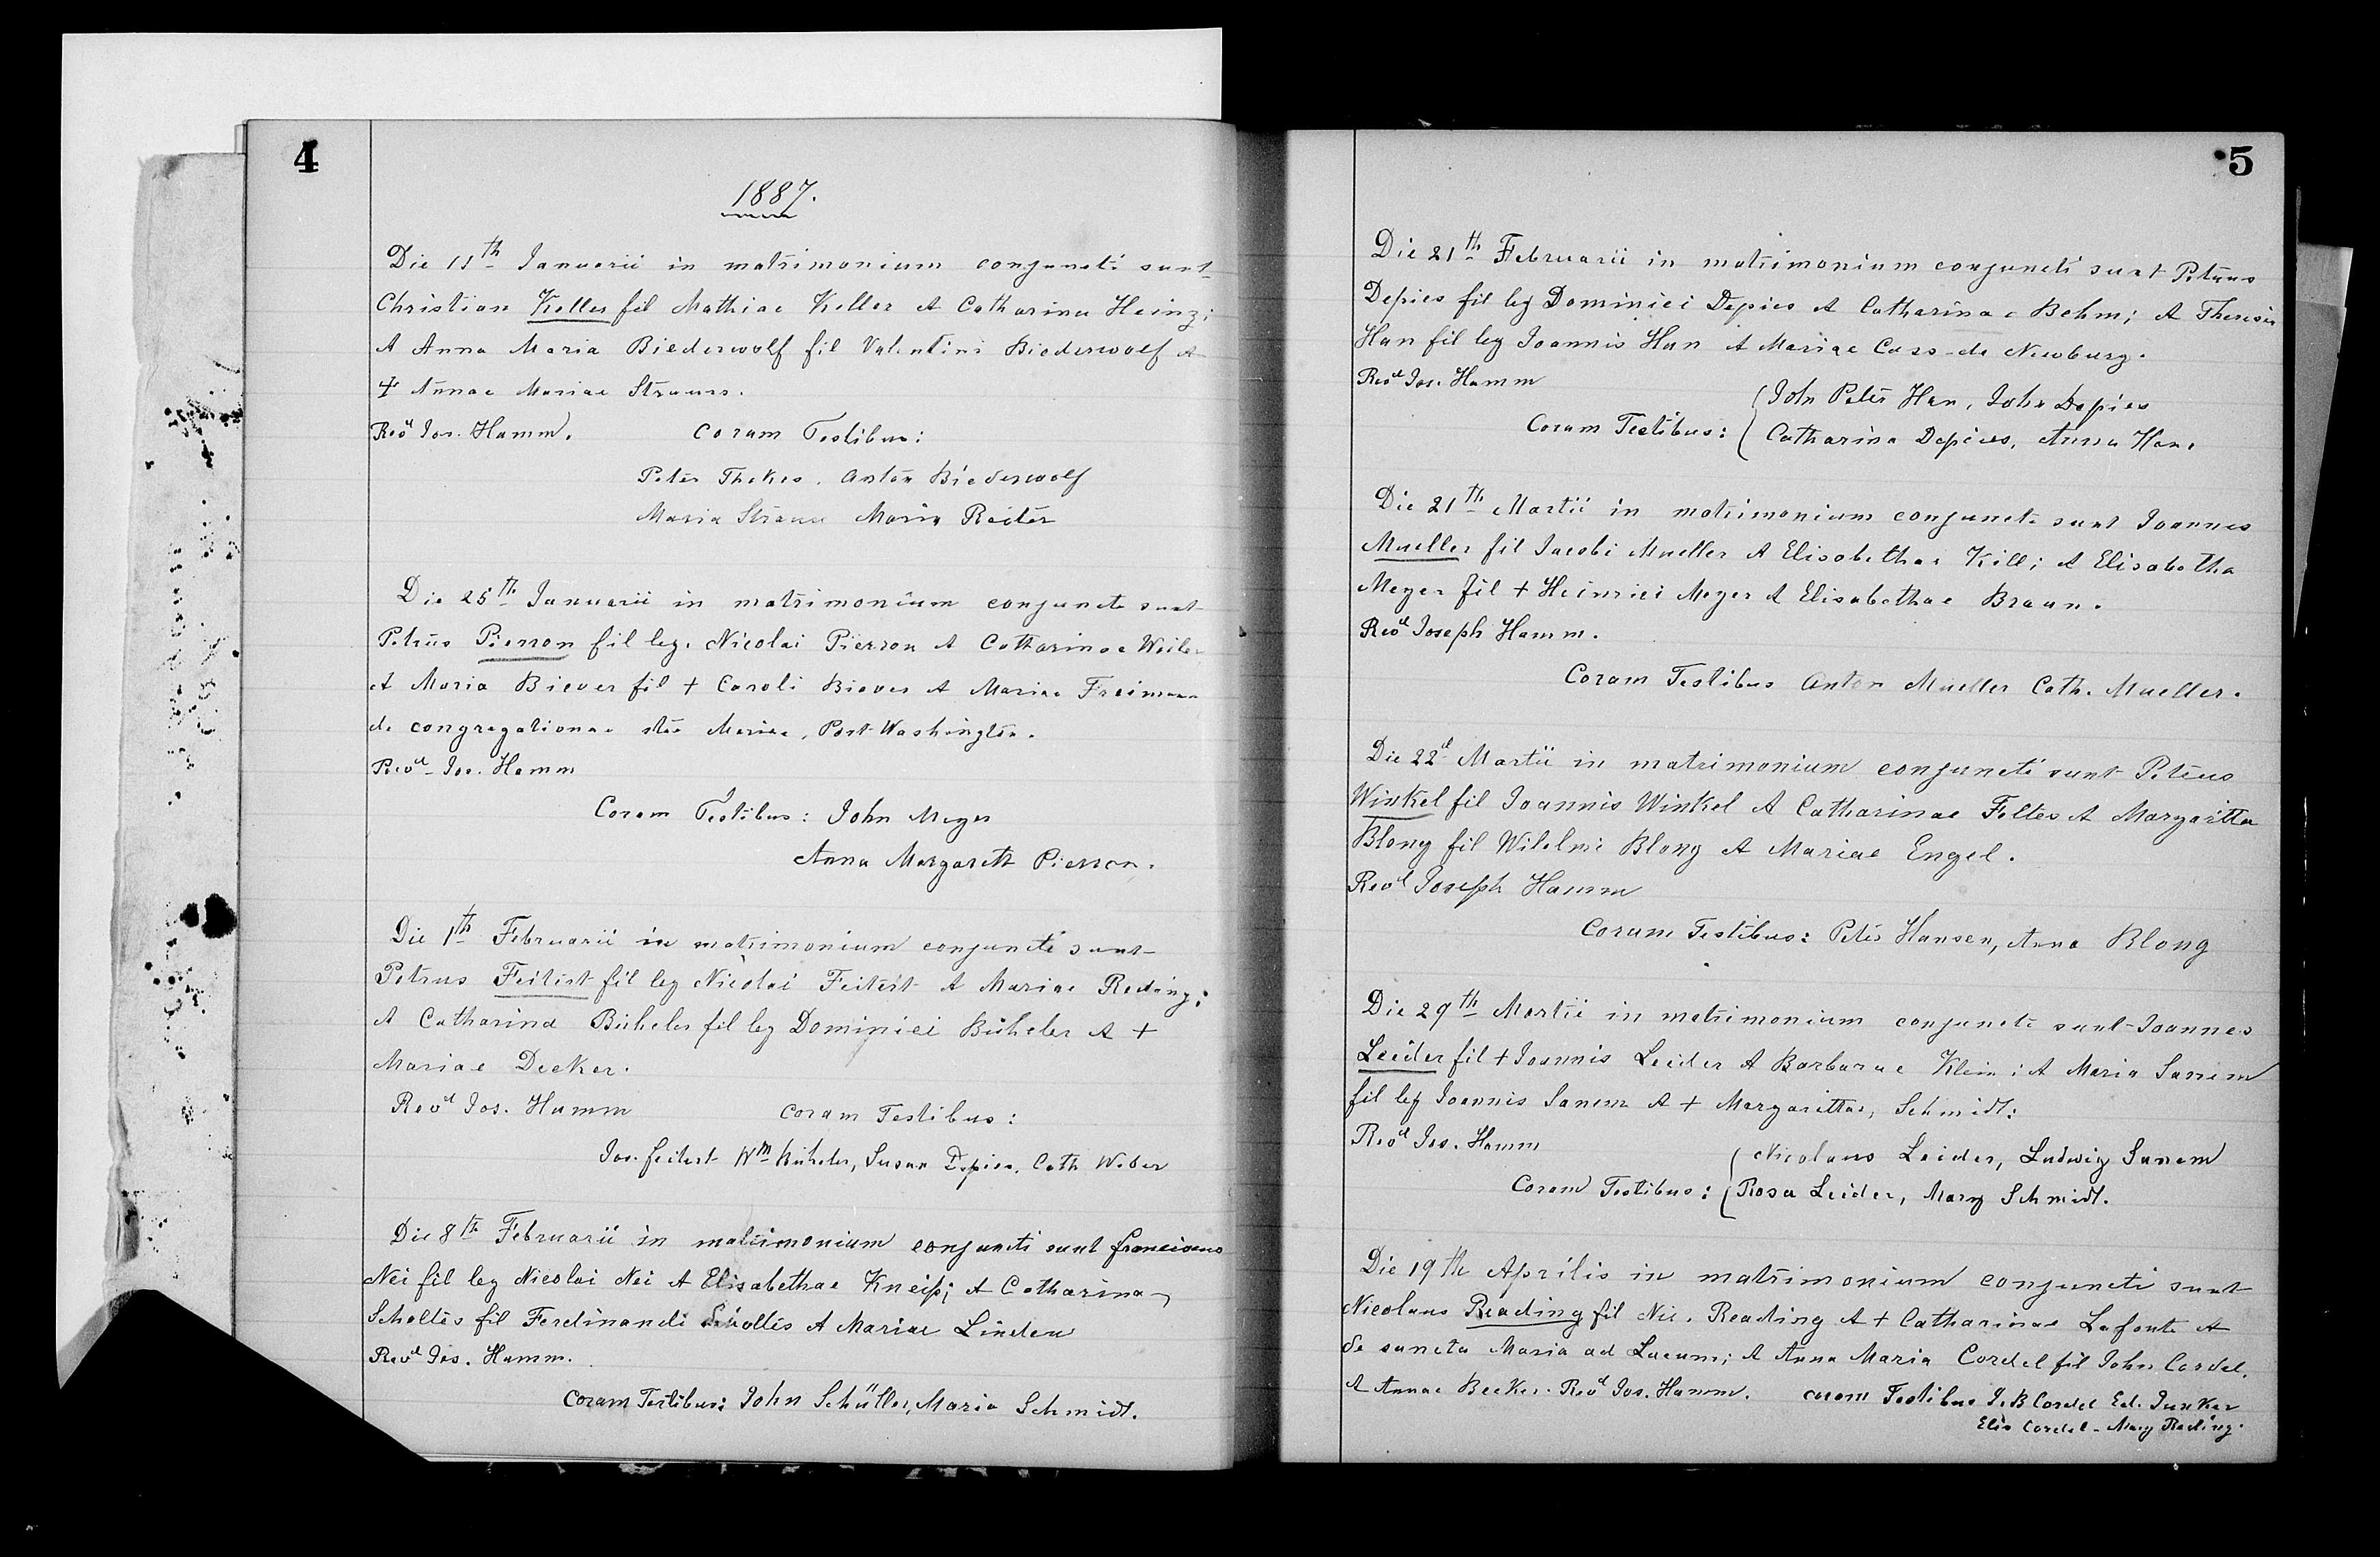 4
1887.
Die 11th Januarii in matrimonium conjuncti sunt
Christian Keller fil Mathiae Keller et Catharina Heinz;
et Anna Maria Biederwolf fil Valentini Biederwolf et
+ Annae Mariae Strauss.
Revd Jos. Hamm. Coram Testibus:
Peter Thekes. Anton Biederwolf
Maria Maria Reiter
Die 25th Januarii in matrimonium conjuncti sunt
Petrus Pierron fil leg. Nicolai Pierron et Catharinae Weiler
et Maria Biever fil + Caroli Biever et Mariae Freimann
de congregationae stae Mariae, Port Washington.
Revd Jos. Hamm
Coram Testibus: John Meyer
Anna Margareth Pierron.
Die 1th Februarii in matrimonium conjuncti sunt
Petrus Feitert fil leg Nicolai Feitert et Mariae Reding;
et Catharina Bücheler fil leg Dominici Bücheler et +
Mariae Decker.
Revd Jos. Hamm Coram Testibus:
Jos. Feitert Wm Bücheler, Susan Depies. Cath Weber
Die 8th Februarii in matrimonium conjuncti sunt franciscus
Nei fil leg Nicolai Nei et Elisabethae Kneip; et Catharina
Scholtes fil Ferdinandi Scholtes et Mariae Linden
Revd Jos. Hamm.
Coram Testibus: John Schüller, Maria Schmidt.
5
Die 21th Februarii in matrimonium conjuncti sunt Petrus
Depies fil leg Dominici Depies et Catharinae Bohm; et Theresia
Han fil leg Joannis Han et Mariae Cass de Newburg.
Revd Jos. Hamm
John Peter Han, John Depies
Coram Testibus: Catharina Depies, Anna Han.
Die 21th Martii in matrimonium conjuncti sunt Joannes
Mueller fil Jacobi Mueller et Elisabethae Kill; et Elisabetha
Meyer fil + Heinrici Meyer et Elisabethae Braun.
Revd Joseph Hamm.
Coram Testibus Anton Mueller Cath. Mueller.
Die 22d Martii in matrimonium conjuncti sunt Petrus
Winkel fil Joannis Winkel et Catharinae Feltes et Margaritta
Blong fil Wilelmi Blong et Mariae Engel.
Revd Joseph Hamm
Coram Testibus: Peter Hansen, Anna Blong
Die 29th Martii in matrimonium conjuncti sunt Joannes
Leider fil + Joannis Leider et Barbarae Klein; et Maria Sanem
fil leg Joannis Sanem et + Margarittae, Schmidt:
Revd Jos. Hamm
Nicolaus Leider, Ludwig Sanem
Coram Testibus: Rosa Leider, Mary Schmidt.
Die 19th Aprilis in matrimonium conjuncti sunt
Nicolaus Reading fil Nic. Reading et + Catharinae Lafonte et
de sancta Maria ad Lacum; et Anna Maria Cordel fil John Cordel.
et Annae Becker. Revd Jos. Hamm. coram Testibus J. B Cordel Ed. Junker
Elis Cordel - Mary Reding.